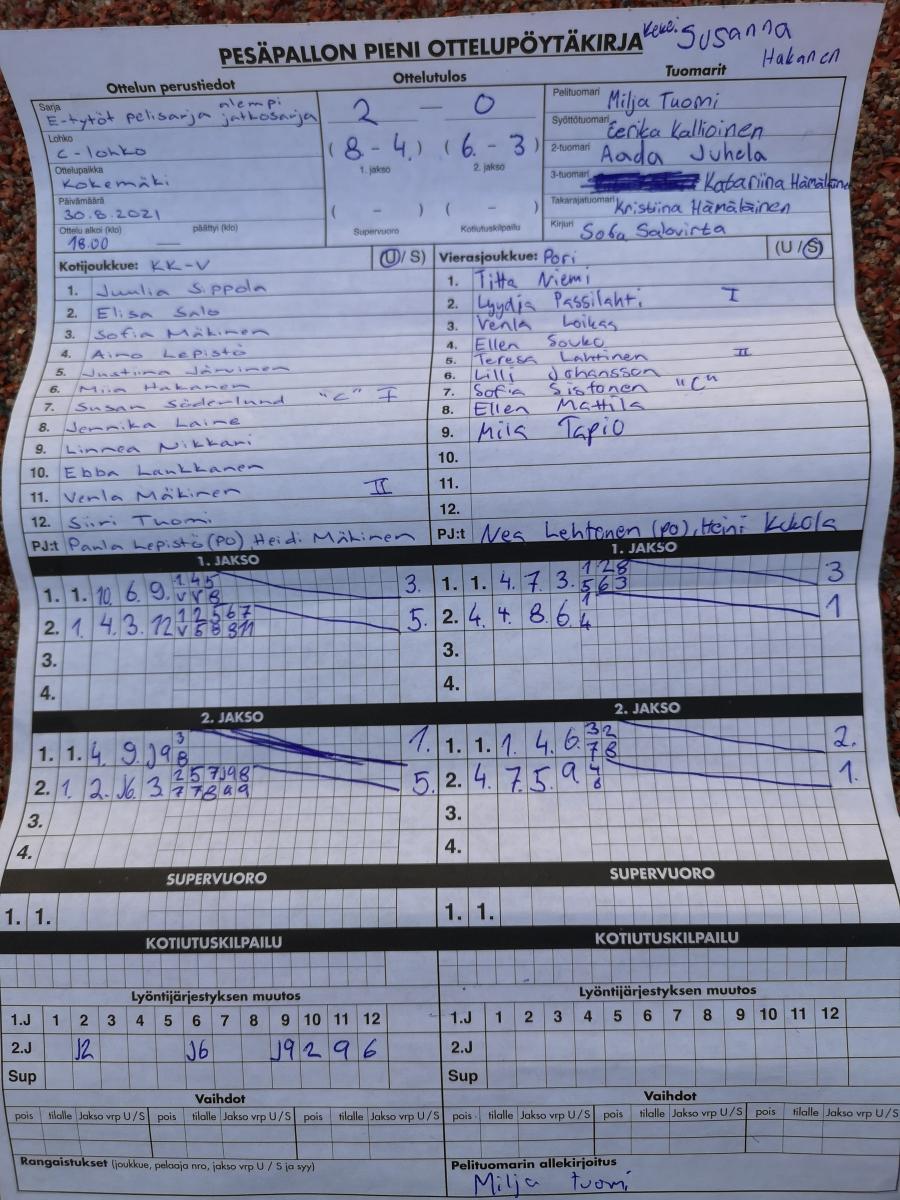 PESÄPALLON PIENI OTTELUPÖYTÄKIRJA
Susanna
Hakanen
Ottelun perustiedot
Ottelutulos
Tuomarit
Sarja
alempi
E-tytöt pelisarja jatkosarja
Lohko
C-lohko
Ottelupaikka
Kokemäki
Päivämäärä
30.8.2021
Ottelu alkoi (klo) päättyi (klo)
18.00 —
2 — 0
(8 - 4.) (6. - 3)
1. jakso 2. jakso
( - ) ( - )
Supervuoro Kotiutuskilpailu
Pelituomari Milja Tuomi
Syöttötuomari Eerika Kallioinen
2-tuomari Aada Juhela
3-tuomari Katariina Hämäläinen
Takarajatuomari Kristiina Hämäläinen
Kirjuri Sofia Salovirta
Kotijoukkue: KK-V (U/S)
1. Juulia Sippola
2. Elisa Salo
3. Sofia Mäkinen
4. Aino Lepistö
5. Justiina Järvinen
6. Miia Hakanen
7. Susan Söderlund "C" I
8. Jennika Laine
9. Linnea Nikkari
10. Ebba Laukkanen
11. Venla Mäkinen II
12. Siiri Tuomi
PJ:t Paula Lepistö (PO) Heidi Mäkinen
Vierasjoukkue: Pori (U/S)
1. Titta Niemi
2. Lyydia Passilahti I
3. Venla Loikas
4. Ellen Souko
5. Teresa Lahtinen II
6. Lilli Johansson
7. Sofia Sistonen "C"
8. Ellen Mattila
9. Mila Tapio
10.
11.
12.
PJ:t Nea Lehtonen (po), Heini Kukola
1. JAKSO
1. 1. 10. 6. 9. 1 4 5 3.
V V 8
2. 1. 4. 3. 12 1 2 5 6 7 5.
3.
4.
1. JAKSO
1. 1. 4. 7. 3. 1 2 8 3
5 6 3
2. 4. 4. 8. 6. 1 1
4
3.
4.
2. JAKSO
1. 1. 4. 9. J9 3 1.
8
2. 1. 2. J6. 3. 2 5 7 J9 8 5.
7 7 8 9 9
3.
4.
2. JAKSO
1. 1. 1. 4. 6. 3 2 2.
7 8
2. 4. 7. 5. 9. 4 1.
8
3.
4.
SUPERVUORO
1. 1.
SUPERVUORO
1. 1.
KOTIUTUSKILPAILU
KOTIUTUSKILPAILU
Lyöntijärjestyksen muutos
1.J 1 2 3 4 5 6 7 8 9 10 11 12
2.J J2 J6 J9 2 9 6
Sup
Lyöntijärjestyksen muutos
1.J 1 2 3 4 5 6 7 8 9 10 11 12
2.J
Sup
Vaihdot
pois tilalle Jakso vrp U/S pois tilalle Jakso vrp U/S pois tilalle Jakso vrp U/S
Vaihdot
pois tilalle Jakso vrp U/S pois tilalle Jakso vrp U/S pois tilalle Jakso vrp U/S
Rangaistukset (joukkue, pelaaja nro, jakso vrp U / S ja syy)
Pelituomarin allekirjoitus
Milja Tuomi